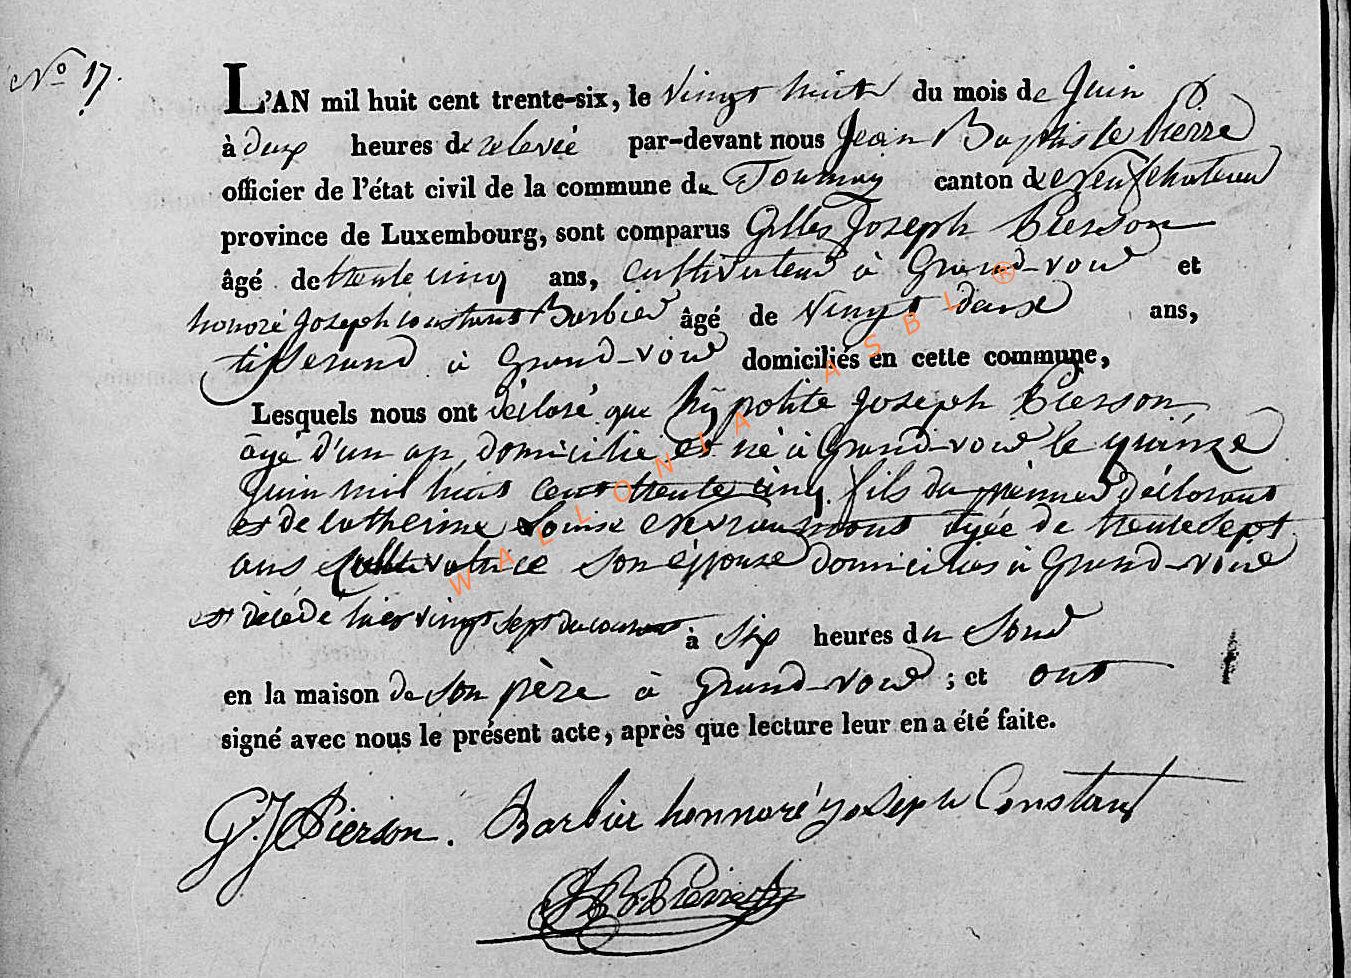 N° 17.
L'AN mil huit cent trente-six, le vingt huit du mois de Juin
à deux heures de relevée par-devant nous Jean Baptiste Pierre
officier de l'état civil de la commune de Tournay canton de Neufchateau
province de Luxembourg, sont comparus Gilles Joseph Pierson
âgé de trente cinq ans, cultivateur à Grand-voir et
honoré Joseph constant Barbier âgé de vingt deux ans,
tisserand à Grand-voir domiciliés en cette commune,
Lesquels nous ont déclaré que hypolite Joseph Pierson,
agé d'un an, domicilié et né à Grand-voir le quinze
Juin mil huit cent trente cinq, fils du premier déclarant
et de catherine Louise agée de trente sept
ans cultivatrice son épouse domiciliés à Grand-voir
est décédé hier vingt sept du courant à six heures du Soir
en la maison de son père à Grand-voir ; et ont
signé avec nous le présent acte, après que lecture leur en a été faite.
G. J. Pierson. Barbier honnoré joseph Constant
J B Pierre
WALLONIA ASBL ®